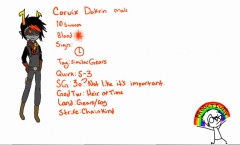 Corvix Dakrin male
10 Sweeps
Blood
Sign:
Tag: SimilarGears
Quirk: S-3
SG: So? Not like it3 important.
God Tier: Heir of Time
Land: Gears/Fog
Strife: Chainkind